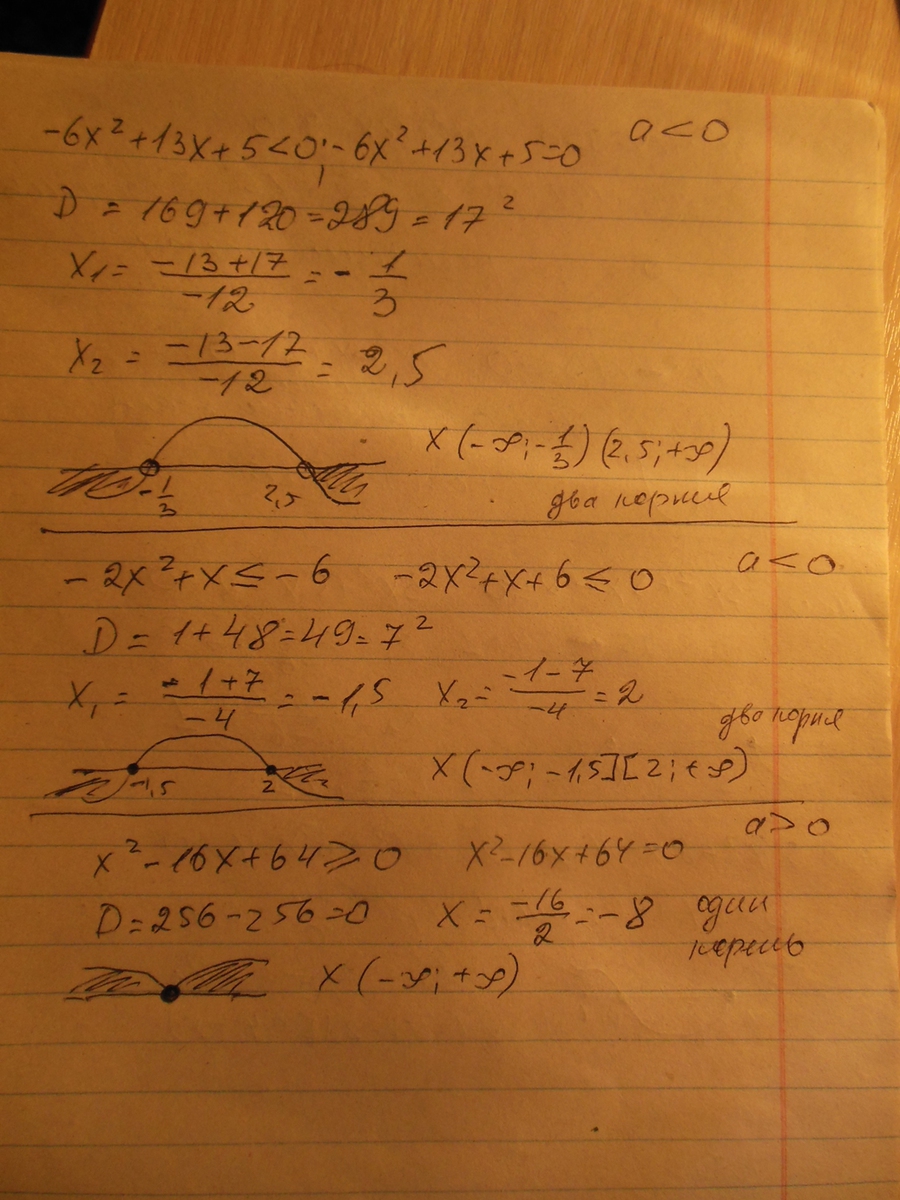 -6x² + 13x + 5 < 0; -6x² + 13x + 5 = 0 a < 0
D = 169 + 120 = 289 = 17²
x₁ = (-13 + 17)/(-12) = -1/3
x₂ = (-13 - 17)/(-12) = 2,5
x (-∞; -1/3) (2,5; +∞)
-1/3 2,5
два корния
-2x² + x ≤ -6 -2x² + x + 6 ≤ 0 a < 0
D = 1 + 48 = 49 = 7²
x₁ = (-1 + 7)/(-4) = -1,5 x₂ = (-1 - 7)/(-4) = 2
два корня
-1,5 2 x (-∞; -1,5] [2; +∞)
a > 0
x² - 16x + 64 ≥ 0 x² - 16x + 64 = 0
D = 256 - 256 = 0 x = -16/2 = -8 один
корень
x (-∞; +∞)